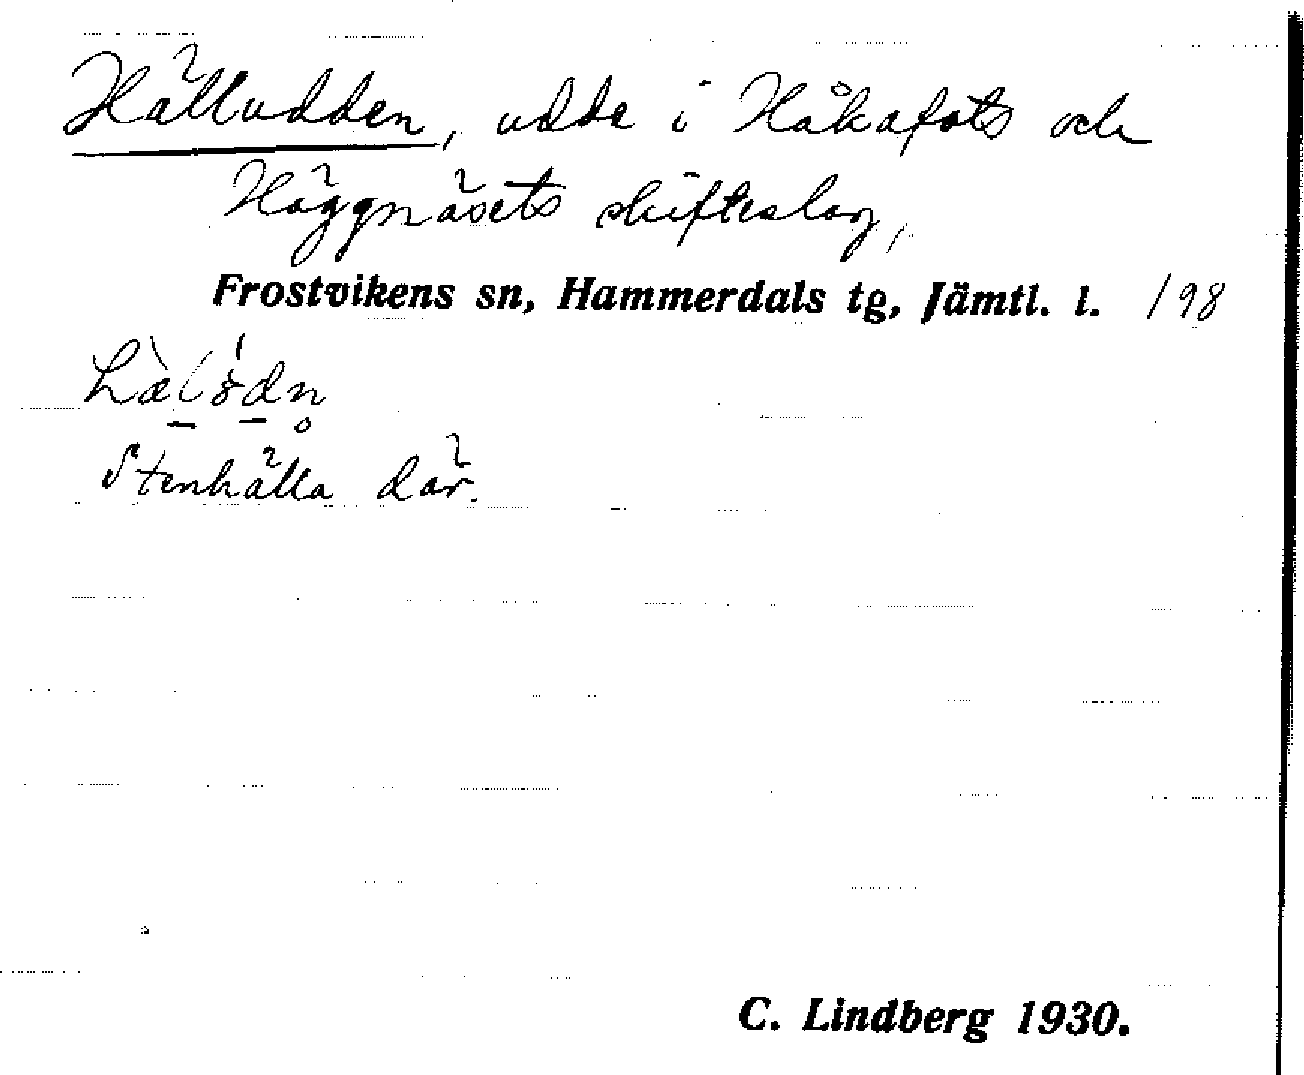 Hälludden, udde i Håkafots och
Häggnäsets skifteslag,
Frostvikens sn, Hammerdals tg, Jämtl. l. 198
Stenhälla där.
C. Lindberg 1930.